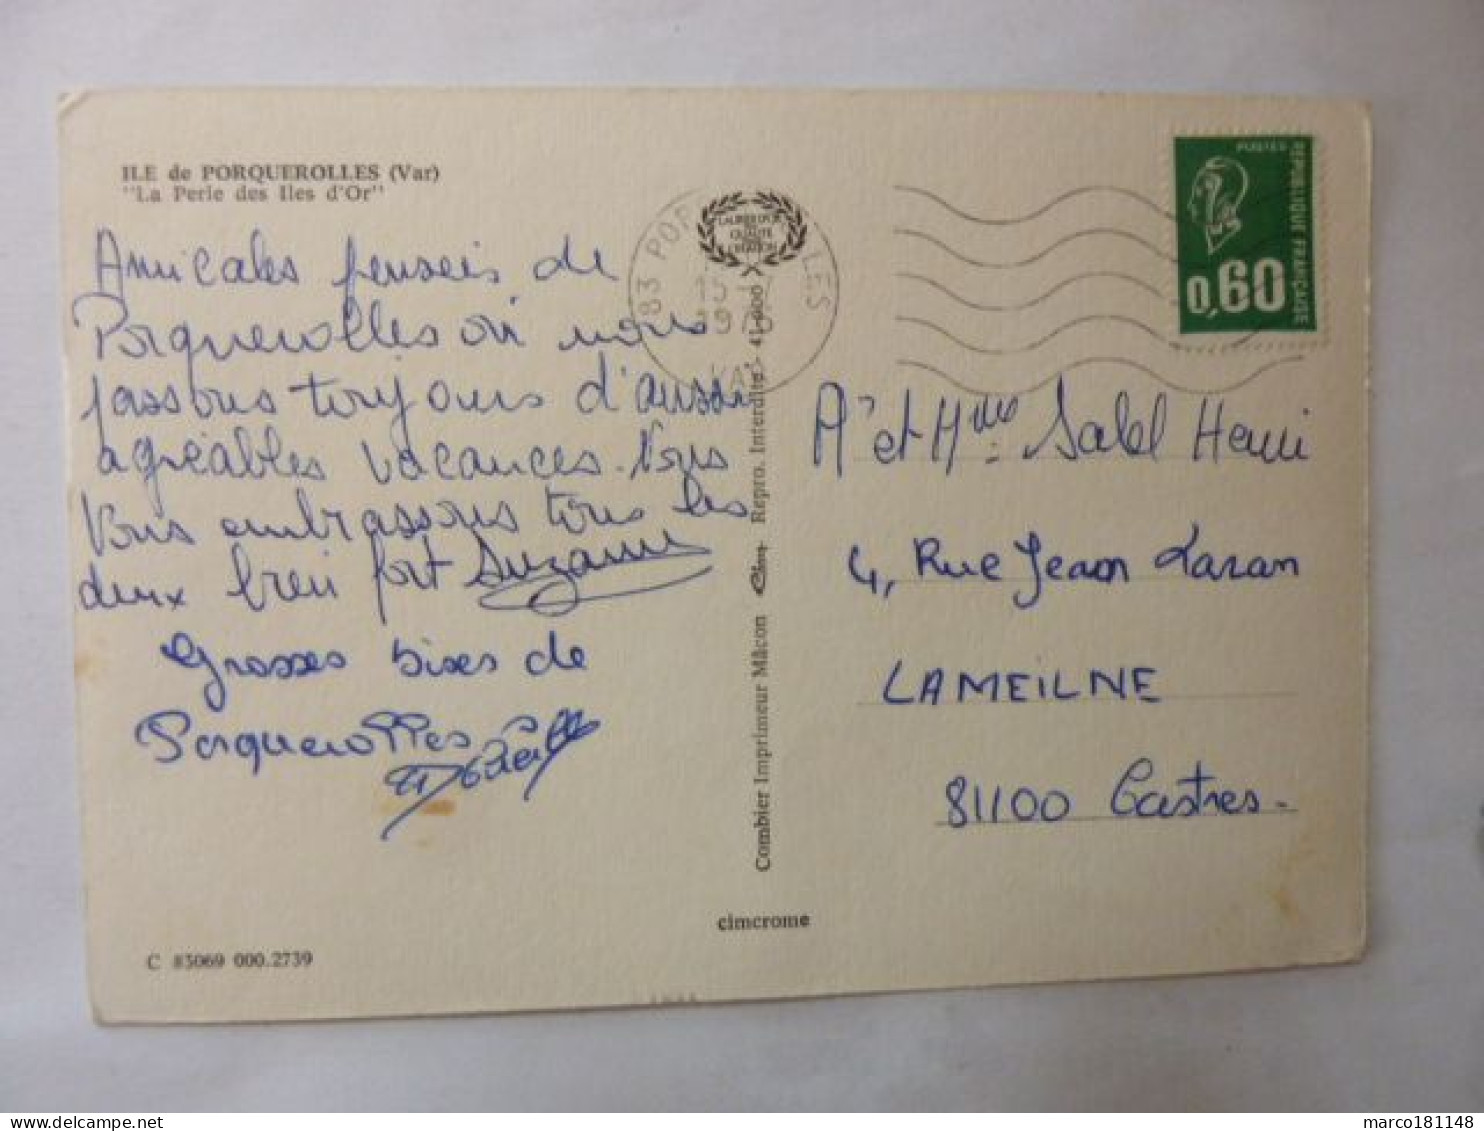 ILE de PORQUEROLLES (Var)
"La Perle des Iles d'Or"
Amicales pensées de
Porquerolles où nous
passons toujours d'aussi
agréables vacances. Nous
Vous embrassons tous les
deux bien fort Suzanne
Grosses bises de
Porquerolles
C 83069 000.2739
LAURIER D'OR
QUALITE
CREATION
83 PORQUEROLLES
15
VAR
Combier Imprimeur Mâcon Repro. Interdite 41.000
cimcrome
POSTES
REPUBLIQUE FRANÇAISE
0,60
Mr et Mme Sabel Henri
4, Rue Jean Laran
LAMEILNE
81100 Castres.
marco181148